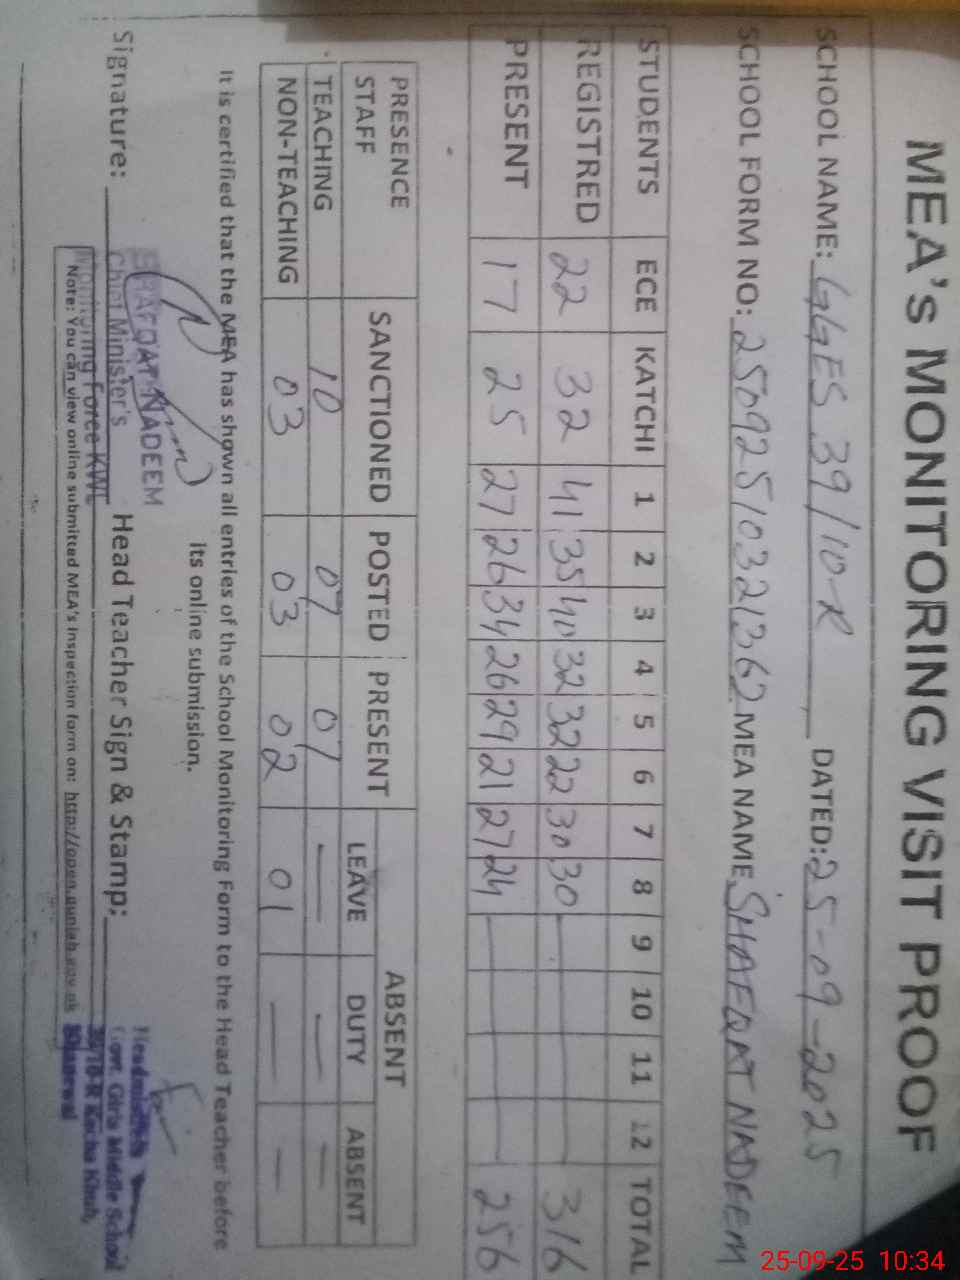 MEA's MONITORING VISIT PROOF
SCHOOL NAME: GGES 39/10-R DATED: 25-09-2025
SCHOOL FORM NO: 25092510321362 MEA NAME SHAFQAT NADEEM
STUDENTS ECE KATCHI 1 2 3 4 5 6 7 8 9 10 11 12 TOTAL
REGISTRED 22 32 41 35 40 32 32 22 30 30 316
PRESENT 17 25 27 26 34 26 29 21 27 24 256
PRESENCE STAFF SANCTIONED POSTED PRESENT ABSENT
LEAVE DUTY ABSENT
TEACHING 10 07 07 — — —
NON-TEACHING 03 03 02 01 — —
It is certified that the MEA has shown all entries of the School Monitoring Form to the Head Teacher before
its online submission.
SHAFQAT NADEEM
Chief Minister's
Monitoring Force KWL
Signature: Head Teacher Sign & Stamp:
Headmistress
Govt. Girls Middle School
39/10-R Kacha Khuh,
Khanewal
Note: You can view online submitted MEA's inspection form on: http://open.punjab.gov.pk
25-09-25 10:34